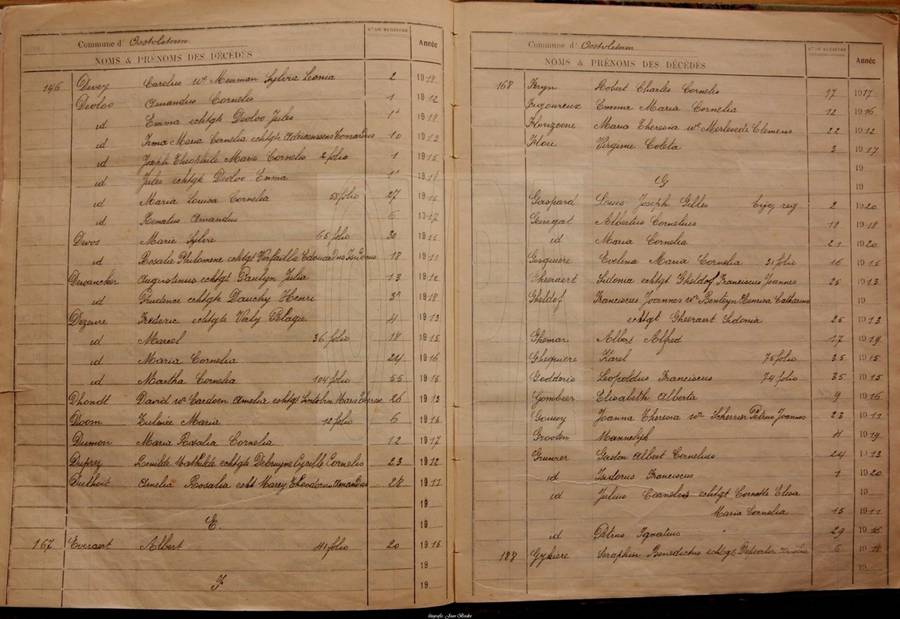 Commune d' Oostvleteren
NOMS & PRÉNOMS DES DÉCÉDÉS
Nº DU REGISTRE
Année
146 Devey Carolus we Memman Sylvia Leonia 2 1918
Devloo Amandus Cornelis 1 1912
id Emma echtge Devloo Jules 1a 1918
id Irma Maria Cornelia echtge 10 1913
id Joseph Theophiele Marie Cornelis 2 folio 1 1915
id Jules echtgt Devloo Emma 1a 1918
id Maria Louisa Cornelia folio 27 1915
id Renatus Amandus 5 1917
Devos Marie Sylvie 65 folio 30 1915
id Rosalie Philomene echtgt Verfaillie Edouardus 18 1911
Dewancker Augustinus echtgt Pauleyn Julia 13 1912
id Prudence echtgte Dauchy Henri 3a 1918
Dezeure Frederic echtgte Valy Pelagie 4 1913
id Marcel 36 folio 18 1915
id Maria Cornelia 24 1916
id Martha Cornelia 104 folio 55 1915
Dhondt David we Cardoen Amelia echtgt Marie Therese 26 1913
Doom Zulmée Maria 12 folio 6 1915
Dumon Maria Rosalia Cornelia 12 1917
Duprez Zenilde Mathilde echtgte Debruyne Cyrille Cornelis 23 1912
Duthoit Amelia Rosalia echt Marey Theodorus 28 1911
19
E. 19
19
167 Everaert Albert 41 folio 20 1915
19
F 19
Commune d' Oostvleteren
NOMS & PRÉNOMS DES DÉCÉDÉS
Nº DU REGISTRE
Année
168 Feryn Robert Charles Cornelis 17 1917
Emma Maria Cornelia 12 1916
Florizoone Maria Theresia we Merlevede Clemens 22 1912
Flou Virginie Coleta 3 1917
19
G 19
Gaspard Louis Joseph Gilles 2 1920
Genegat Albertus Cornelius 11 1918
id Maria Cornelia 21 1920
Gesquiere Evelina Maria Cornelia 21 folio 16 1915
Gheeraert Sidonia echtgt Gheldof Franciscus Joannes 25 1913
Gheldof Franciscus Joannes we Benleyn Henrica Catharina 19
echtgt Gheeraert Sidonia 25 1913
Ghemar Albert Alfred 17 1919
Ghequiere Karel 75 folio 25 1915
Godderis Leopoldus Franciscus 74 folio 35 1915
Gombeer Elisabeth Alberta 9 1916
Gouwy Joanna Theresia we Scherrier Petrus Joannes 23 1911
Grooten Mannelijk 4 1919
Grimmer Gaston Albert Cornelius 24 1913
id Isidorus Franciscus 1 1920
id Julius Cornelis echtgt Cornette Elisa 19
Maria Cornelia 15 1911
id Petrus Ignatius 29 1915
187 Gykiere Seraphin Benedictus echtgt 6 1918
19